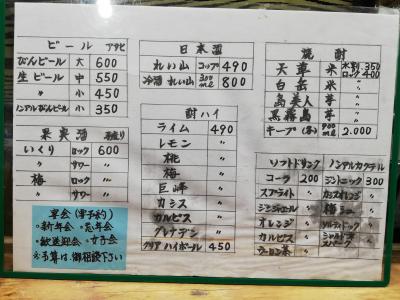 ビール アサヒ
びんビール 大 600
生ビール 中 550
〃 小 450
ノンアルびんビール 小 350
果実酒
いくり ロック 600
〃 サワー 〃
梅 ロック 〃
〃 サワー 〃
宴会(要予約)
・新年会 ・忘年会
・歓送迎会 ・女子会
※予算は、御相談下さい
日本酒
れいざん コップ 490
冷酒 れい山 300ml 800
酎ハイ
ライム 490
レモン 〃
桃 〃
梅 〃
巨峰 〃
カシス 〃
カルピス 〃
グレナデン 〃
クリアハイボール 450
焼酎
天草 米 水割 350 ロック 400
白岳 米 〃
島美人 芋 〃
黒霧島 芋 〃
キープ(各) 900ml 2.000
ソフトドリンク
コーラ 200
スプライト 〃
ジンジャエール 〃
オレンジ 〃
カルピス 〃
ウーロン茶 〃
ノンアルカクテル
ジントニック 300
カシスオレンジ 〃
梅シュー 〃
ソルティドッグ 〃